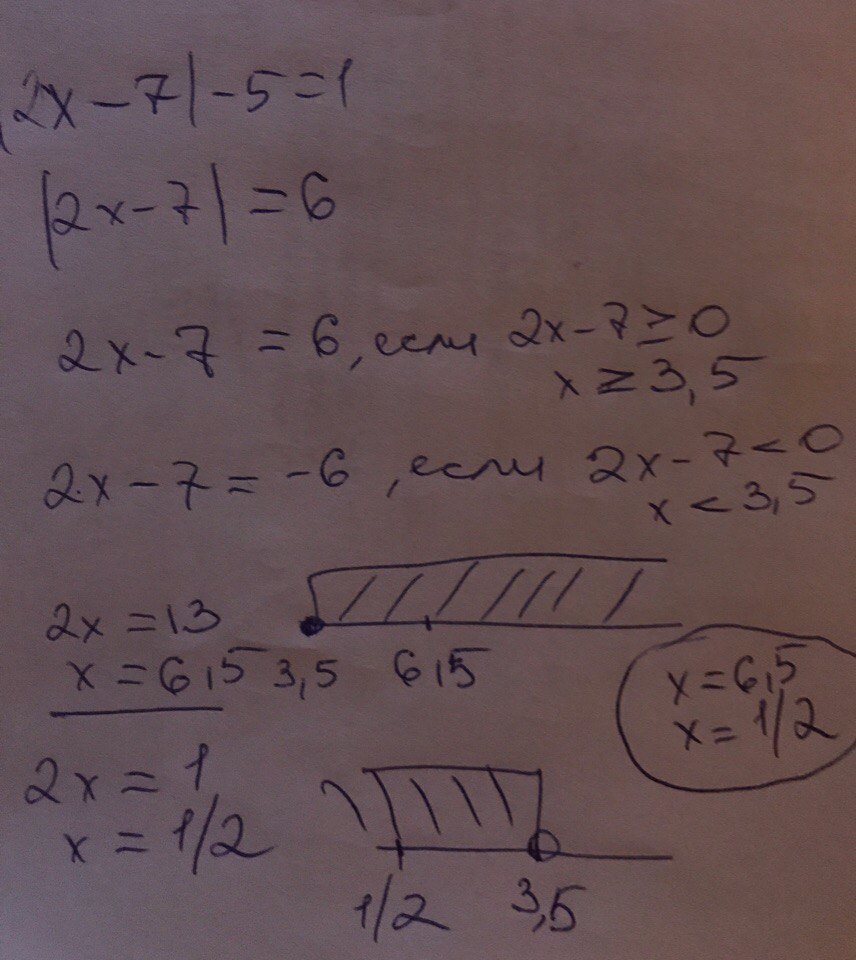 |2x-7|-5=1
|2x-7|=6
2x-7 = 6, если 2x-7≥0
x ≥ 3,5
2x-7=-6, если 2x-7<0
x < 3,5
2x = 13
x = 6,5
3,5 6,5
x=6,5
x=1/2
2x = 1
x = 1/2
1/2 3,5